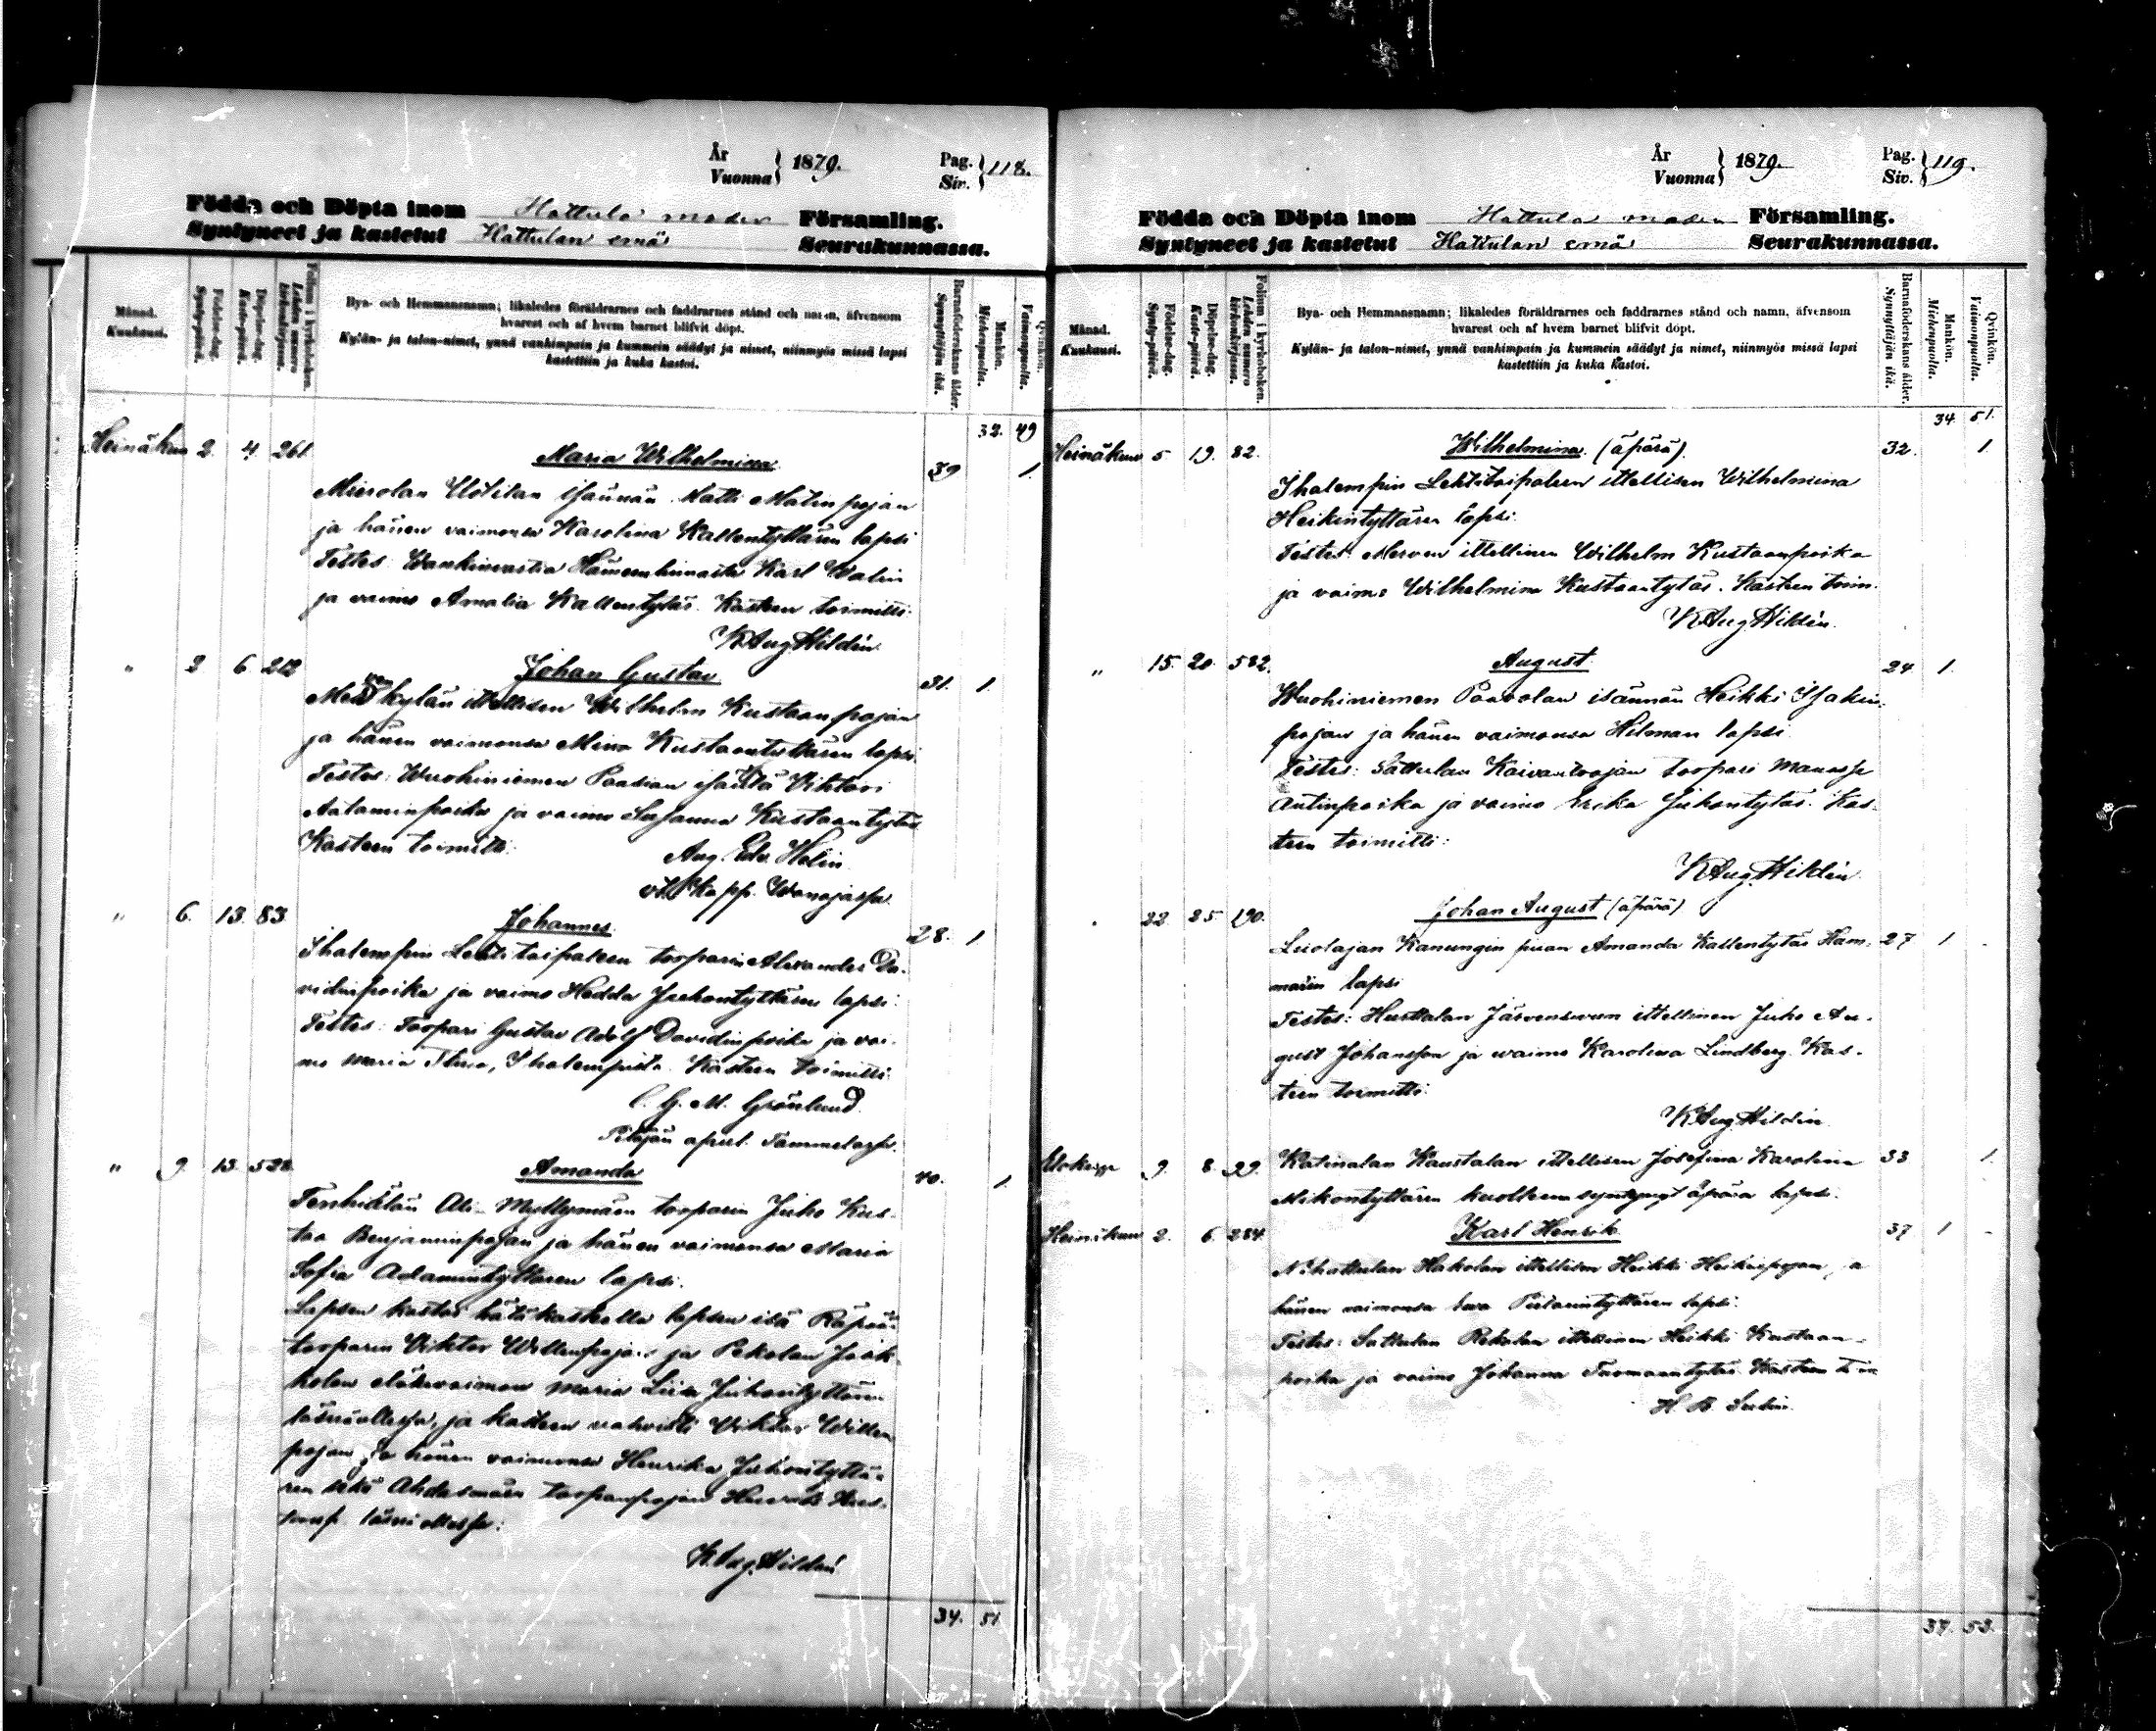 År
Vuonna } 1879. Pag.
Siv. } 118.
Födda och Döpta inom Hattula moder Församling.
Syntyneet ja kastetut Hattulan emä Seurakunnassa.
Månad.
Kuukausi.
Födelse-dag.
Synty-päivä.
Döpelse-dag.
Kaste-päivä.
Folium i kyrkoboken.
Lehden numero kirkonkirjassa.
Bya- och Hemmansnamn; likaledes föräldrarnes och faddrarnes stånd och namn, äfvensom
hvarest och af hvem barnet blifvit döpt.
Kylän- ja talon-nimet, ynnä vanhimpain ja kummein säädyt ja nimet, niinmyös missä lapsi
kastettiin ja kuka kastoi.
Barnaföderskans ålder.
Synnyttäjän ikä.
Mankön.
Miehenpuolia.
Qvinkön.
Vaimonpuolia.
32. 49
Heinäkuu 2. 4. 261. Maria Wilhelmina 39 1.
Mierolan Uotilan isännän Matti Matinpojan
ja hänen vaimonsa Karolina Kallentyttären lapsi
Testes: Wankivartia Hämeenlinnasta Karl Walin
ja vaimo Amalia Kallentytär. Kasteen toimitti:
K Aug Hildén
" 2 6. 212 Johan Gustav 31. 1.
Merven kylän ittellisen Wilhelm Kustaanpojan
ja hänen vaimonsa Mina Kustaantyttären lapsi.
Testes: Wuohiniemen Paavian isäntä Viktori
Aataminpoika ja vaimo Susanna Kustaantytär
Kasteen toimitti:
Aug. Edv. Helin
vt. Kapp. Wanajassa.
" 6. 13. 83. Johannes 28. 1.
Ihalempin Lehtitaipaleen tooparin Alexander Da-
vidinpoika ja vaimo Hedda Juhontyttären lapsi:
Testes: Toopari Gustav Adolf Davidinpoika ja vai-
mo Maria Stina, Ihalempistä. Kasteen toimitti:
C. G. M. Grönlund
Pitäjän apul. Tammelassa.
" 9. 13. 528. Amanda 40. 1.
Tenhiälän Ali-Myllymäen tooparin Juho Kus-
taa Benjaminpojan ja hänen vaimonsa Maria
Sofia Adamintyttären lapsi.
Lapsen kastoi hätäkasteella lapsen isä
tooparin Viktor Willenpojan ja Pekolan Jaak-
kolan eläkevaimon Maria Liisa Juhontyttären
läsnäollessa, ja kasteen vahvisti Viktor Willen
pojan ja hänen vaimonsa Henrika Juhontyttä-
ren sekä Ahdasmäen tooparipojan
läsnäollessa:
K. Aug. Hildén
34. 51
År
Vuonna } 1879. Pag.
Siv. } 119.
Födda och Döpta inom Hattula moder Församling.
Syntyneet ja kastetut Hattulan emä Seurakunnassa.
Månad.
Kuukausi.
Födelse-dag.
Synty-päivä.
Döpelse-dag.
Kaste-päivä.
Folium i kyrkoboken.
Lehden numero kirkonkirjassa.
Bya- och Hemmansnamn; likaledes föräldrarnes och faddrarnes stånd och namn, äfvensom
hvarest och af hvem barnet blifvit döpt.
Kylän- ja talon-nimet, ynnä vanhimpain ja kummein säädyt ja nimet, niinmyös missä lapsi
kastettiin ja kuka kastoi.
Barnaföderskans ålder.
Synnyttäjän ikä.
Mankön.
Miehenpuolia.
Qvinkön.
Vaimonpuolia.
34. 51.
Heinäkuu 5. 19. 82. Wilhelmina (äpärä). 32. 1.
Ihalempin Lehtitaipaleen ittellisen Wilhelmina
Heikintyttären lapsi.
Testes: Merven ittellinen Wilhelm Kustaanpoika
ja vaimo Wilhelmina Kustaantytär. Kasteen toim.
K Aug. Hildén.
" 15. 20. 582. August. 24 1.
Wuohiniemen Paavolan isännän Heikki Isakin-
pojan ja hänen vaimonsa Hilman lapsi.
Testes: Sattulan Kaivantoojan toopari Manasse
Antinpoika ja vaimo Erika Juhontytär. Kas-
teen toimitti:
K Aug. Hildén.
22. 25. 190. Johan August (äpärä)
Luolajan Kanungin piian Amanda Kallentytär Ham- 27 1
marin lapsi
Testes: Hurttalan Järvensuun ittellinen Juho Au-
gust Johansson ja vaimo Karolina Lindberg. Kas-
teen toimitti:
K Aug Hildén
Elokuu 9. 8. 29. Katinalan Kaustalan ittellisen Josefina Karolina 33 1.
Mikontyttären kuolleena syntynyt äpärä lapsi.
Heinäkuu 2. 6. 284. Karl Henrik 37 1
N:hattulan Hakolan ittellisen Heikki Heikinpojan ja
hänen vaimonsa Eeva Pietarintyttären lapsi.
Testes: Sattulan Rekolan ittellinen Heikki Kustaan-
poika ja vaimo Johanna Tuomaantytär. Kasteen toim
37. 53.